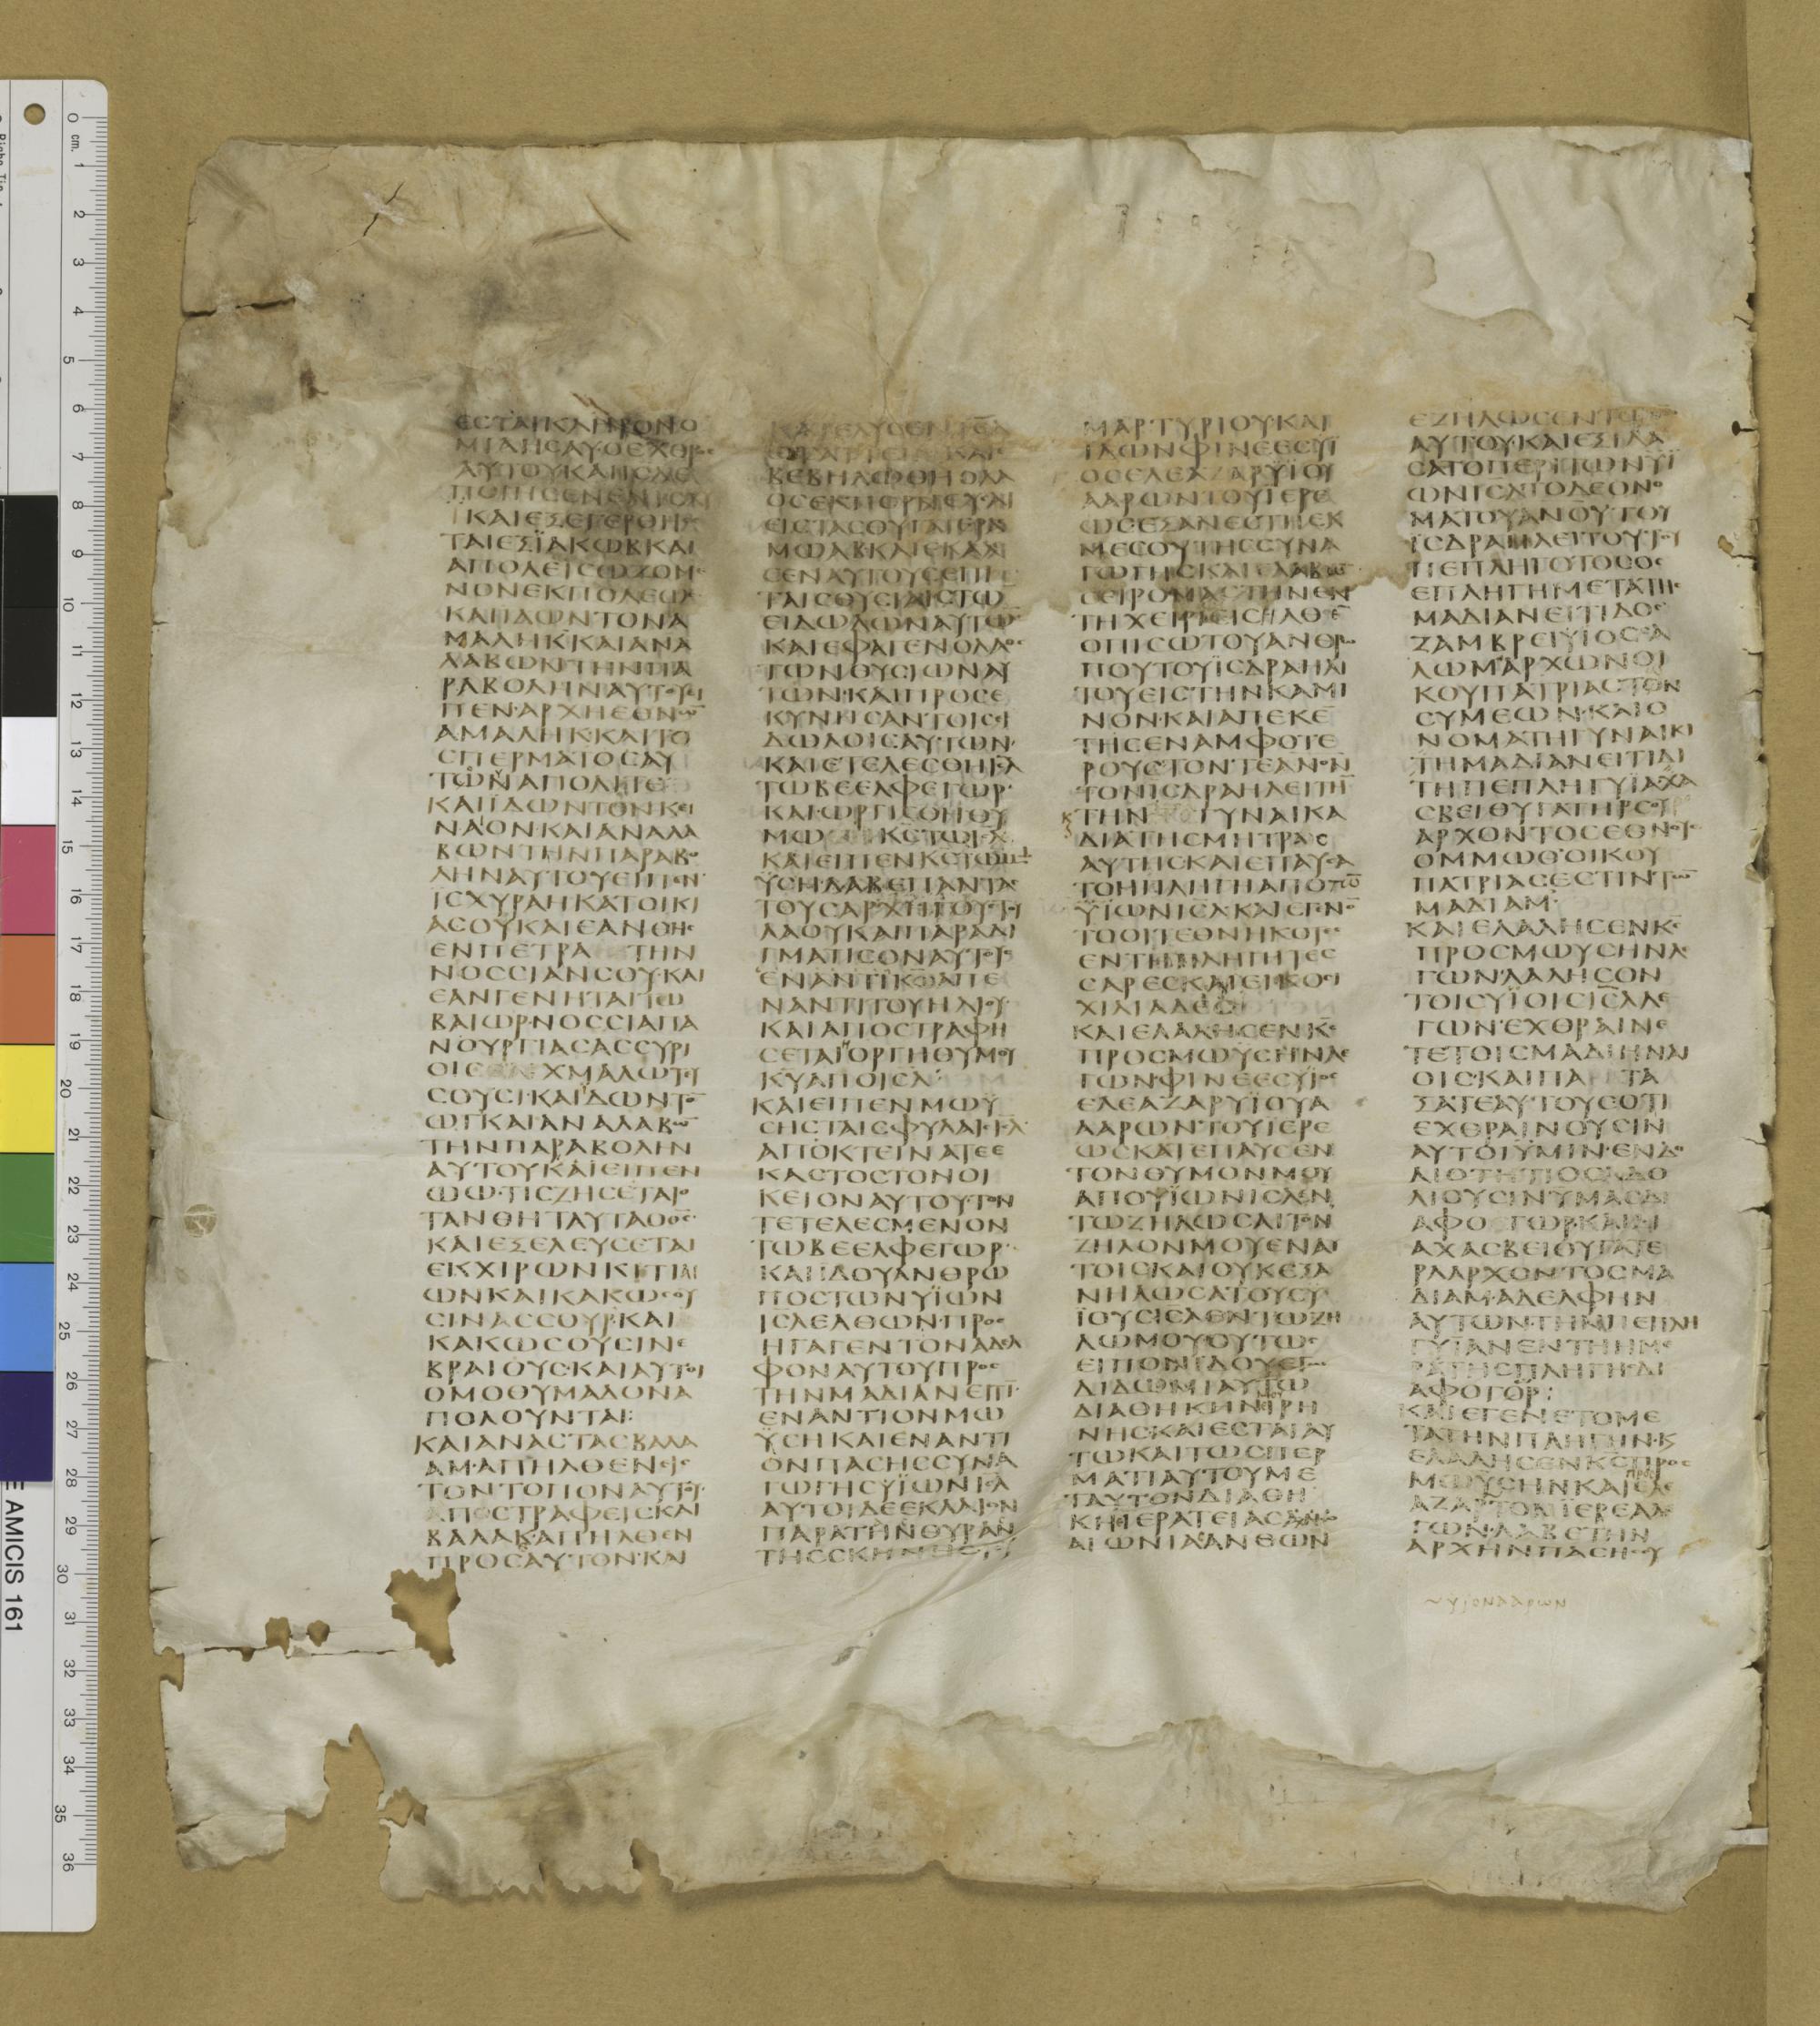 ΕΣΤΑΙΚΛΗΡΟΝΟ
ΜΙΑΗΣΑΥΟΕΧΘΡΟς
ΑΥΤΟΥΚΑΙΙΣΛΕ
ΠΟΙΗΣΕΝΕΝΙΣΧΙ
ΚΑΙΕΞΕΓΕΡΘΗΣ
ΤΑΙΕΞΪΑΚΩΒΚΑΙ
ΑΠΟΛΕΙΣΩΖΟΜΕ
ΝΟΝΕΚΠΟΛΕΩΣ
ΚΑΙΙΔΩΝΤΟΝΑ
ΜΑΛΗΚΚΑΙΑΝΑ
ΛΑΒΩΝΤΗΝΠΑ
ΡΑΒΟΛΗΝΑΥΤΟΥΕΙ
ΠΕΝ·ΑΡΧΗΕΘΝΩ̅
ΑΜΑΛΗΚ·ΚΑΙΤΟ
ΣΠΕΡΜΑΤΟΣΑΥ
ΤΩΝΑΠΟΛΙΤΕ
ΚΑΙΪΔΩΝΤΟΝΚΕΙ
ΝΑΙΟΝ·ΚΑΙΑΝΑΛΑ
ΒΩΝΤΗΝΠΑΡΑΒΟ
ΛΗΝΑΥΤΟΥΕΙΠΕΝ·
ΙΣΧΥΡΑΗΚΑΤΟΙΚΙ
ΑΣΟΥΚΑΙΕΑΝΘΗς
ΕΝΠΕΤΡΑ ΤΗΝ
ΝΟΣΣΙΑΝΣΟΥ·ΚΑΙ
ΕΑΝΓΕΝΗΤΑΙΤΩ
ΒΑΙΩΡ·ΝΟΣΣΙΑΠΑ
ΝΟΥΡΓΙΑΣΑΣΣΥΡΙ
ΟΙΕ ΧΜΑΛΩΤΕΥ
ΣΟΥΣΙ·ΚΑΙΪΔΩΝΤΟ̅
ΩΓΚΑΙΑΝΑΛΑΒΩ̅
ΤΗΝΠΑΡΑΒΟΛΗΝ
ΑΥΤΟΥΚΑΙΕΙΠΕΝ
ΩΩ·ΤΙΣΖΗΣΕΤΑΙΟ
ΤΑΝΘΗΤΑΥΤΑΟΘ̅Σ·
ΚΑΙΕΞΕΛΕΥΣΕΤΑΙ
ΕΙΚΧΙΡΩΝΚΙΤΙΑΙ
ΩΝΚΑΙΚΑΚΩΣΟΥ
ΣΙΝΑΣΣΟΥΡ·ΚΑΙ
ΚΑΚΩΣΟΥΣΙΝΕ
ΒΡΑΙΟΥΣ·ΚΑΙΑΥΤΟΙ
ΟΜΟΘΥΜΑΔΟΝΑ
ΠΟΛΟΥΝΤΑΙ:
ΚΑΙΑΝΑΣΤΑΣΒΑΛΑ
ΑΜ·ΑΠΗΛΘΕΝΕΙς
ΤΟΝΤΟΠΟΝΑΥΤΟΥ·
ΑΠΟΣΤΡΑΦΕΙΣΚΑΙ
ΒΑΛΑΚ·ΑΠΗΛΘΕΝ
ΠΡΟΣΑΥΤΟΝ·ΚΑΙ
ΚΑΤΕΛΥΣΕΝΙΣ̅Λ
ΒΕΒΗΛΩΘΗΟΛΑ
ΟΣΕΚΠΟΡΝΕΥΣΑΙ
ΕΙΣΤΑΣΘΥΓΑΤΕΡΑΣ
ΜΩΑΒΚΑΙΕΚΑΛΕ
ΣΕΝΑΥΤΟΥΣΕΠΙ
ΤΑΙΣΘΥΣΙΑΙΣΤΩ
ΕΙΔΩΛΩΝΑΥΤΩ̅
ΚΑΙΕΦΑΓΕΝΟΛΑΟς
ΤΩΝΘΥΣΙΩΝΑΥ
ΤΩΝ·ΚΑΙΠΡΟΣΕ
ΚΥΝΗΣΑΝΤΟΙΣΕΙ
ΔΩΛΟΙΣΑΥΤΩΝ·
ΚΑΙΕΤΕΛΕΣΘΗΙΣ̅Λ
ΤΩΒΕΕΛΦΕΓΩΡ·
ΚΑΙ·ΩΡΓΙΣΘΗΘΥ
ΜΩ Κ̅Σ̅ΤΩΙΣ̅Λ
ΚΑΙΕΙΠΕΝΚ̅Σ̅ΤΩΜΩ
ΫΣΗ·ΛΑΒΕΠΑΝΤΑΣ
ΤΟΥΣΑΡΧΗΓΟΥΣΤΟΥ
ΛΑΟΥΚΑΙΠΑΡΑΔΙ
ΓΜΑΤΙΣΟΝΑΥΤΟΥΣ
ΕΝΑΝΤΙΚ̅Ω̅ΑΠΕ
ΝΑΝΤΙΤΟΥΗΛΙΟΥ·
ΚΑΙΑΠΟΣΤΡΑΦΗ
ΣΕΤΑΙΟΡΓΗΘΥΜΟΥ
Κ̅Υ̅ΑΠΟΙΣ̅Λ
ΚΑΙΕΙΠΕΝΜΩΫ
ΣΗΣΤΑΙΣΦΥΛΑΙΣΙ̅Σ̅Λ
ΑΠΟΚΤΕΙΝΑΤΕΕ
ΚΑΣΤΟΣΤΟΝΟΙ
ΚΕΙΟΝΑΥΤΟΥ·ΤΟΝ
ΤΕΤΕΛΕΣΜΕΝΟΝ
ΤΩΒΕΕΛΦΕΓΩΡ·
ΚΑΙΪΔΟΥΑΝΘΡΩ
ΠΟΣΤΩΝΥΪΩΝ
ΙΣ̅ΛΕΛΘΩΝ·ΠΡΟς
ΗΓΑΓΕΝΤΟΝΑΔΕΛ
ΦΟΝΑΥΤΟΥΠΡΟς
ΤΗΝΜΑΔΙΑΝΕΙΤΙ̅
ΕΝΑΝΤΙΟΝΜΩ
ΫΣΗΚΑΙΕΝΑΝΤΙ
ΟΝΠΑΣΗΣΣΥΝΑ
ΓΩΓΗΣΥΪΩΝΙ̅Σ̅Λ
ΑΥΤΟΙΔΕΕΚΛΑΙΟΝ
ΠΑΡΑΤΗΝΘΥΡΑΝ
ΤΗΣΣΚΗΝΗΣΤΟΥ
ΜΑΡΤΥΡΙΟΥΚΑΙ
ΪΔΩΝΦΙΝΕΕΣΥΪ
ΟΣΕΛΕΑΖΑΡΥΪΟΥ
ΑΑΡΩΝΤΟΥΪΕΡΕ
ΩΣΕΞΑΝΕΣΤΗΕΚ
ΜΕΣΟΥΤΗΣΣΥΝΑ
ΓΩΓΗΣΚΑΙΛΑΒΩ̅
ΣΕΙΡΟΜΑΣΤΗΝΕΝ
ΤΗΧΕΙΡΙΕΙΣΗΛΘΕ̅
ΟΠΙΣΩΤΟΥΑΝΘΡΩ
ΠΟΥΤΟΥΪΣΔΡΑΗΛΙ
ΤΟΥΕΙΣΤΗΝΚΑΜΙ
ΝΟΝ·ΚΑΙΑΠΕΚΕ̅
ΤΗΣΕΝΑΜΦΟΤΕ
ΡΟΥΣΤΟΝΤΕΑΝΘΝ
ΤΟΝΙΣΔΡΑΗΛΕΙΤΗ̅
ΤΗΝ ΓΥΝΑΙΚΑ
ΔΙΑΤΗΣΜΗΤΡΑΣ
ΑΥΤΗΣ·ΚΑΙΕΠΑΥΣΑ
ΤΟΗΠΛΗΓΗΑΠΟΤΩ̅
ΫΪΩΝΙ̅Σ̅Λ·ΚΑΙΕΓΕΝΟ
ΤΟΟΙΤΕΘΝΗΚΟΤΕς
ΕΝΤΗΠΛΗΓΗΤΕΣ
ΣΑΡΕΣΚΑΙΕΙΚΟΣΙ
ΧΙΛΙΑΔΕΣ
ΚΑΙΕΛΑΛΗΣΕΝΚ̅Σ̅
ΠΡΟΣΜΩΫΣΗΝΛΕ
ΓΩΝ·ΦΙΝΕΕΣΥΪΟς
ΕΛΕΑΖΑΡΥΪΟΥΑ
ΑΑΡΩΝ·ΤΟΥΪΕΡΕ
ΩΣΚΑΤΕΠΑΥΣΕΝ
ΤΟΝΘΥΜΟΝΜΟΥ
ΑΠΟΥΪΩΝΙ̅Σ̅ΛΕΝ
ΤΩΖΗΛΩΣΑΙΤΟΝ
ΖΗΛΟΝΜΟΥΕΝΑΥ
ΤΟΙΣΚΑΙΟΥΚΕΞΑ
ΝΗΛΩΣΑΤΟΥΣΥ
ΪΟΥΣΙ̅Σ̅ΛΕΝΤΩΖΗ
ΛΩΜΟΥ·ΟΥΤΩς
ΕΙΠΟΝΙΔΟΥΕΓΩ
ΔΙΔΩΜΙΑΥΤΩ
ΔΙΑΘΗΚΗΝΙΡΗ
ΝΗΣΚΑΙΕΣΤΑΙΑΥ
ΤΩΚΑΙΤΩΣΠΕΡ
ΜΑΤΙΑΥΤΟΥΜΕ
ΤΑΥΤΟΝΔΙΑΘΗ
ΚΗΪΕΡΑΤΕΙΑΣ
ΑΙΩΝΙΑΑΝΘΩΝ
ΕΖΗΛΩΣΕΝΤΩΘΩ
ΑΥΤΟΥ·ΚΑΙΕΞΙΛΑ
ΣΑΤΟΠΕΡΙΤΩΝΥΪ
ΩΝΙ̅Σ̅Λ·ΤΟΔΕΟΝΟ
ΜΑΤΟΥΑΝΟΥΤΟΥ
ΪΣΔΡΑΗΛΕΙΤΟΥΤΟΥ
ΠΕΠΛΗΓΟΤΟΣΟς
ΕΠΛΗΓΗΜΕΤΑΤΗς
ΜΑΔΙΑΝΕΙΤΙΔΟς
ΖΑΜΒΡΕΙΥΪΟΣΣΑ
ΛΩΜ·ΑΡΧΩΝΟΙ
ΚΟΥΠΑΤΡΙΑΣΤΩΝ
ΣΥΜΕΩΝ·ΚΑΙΟ
ΝΟΜΑΤΗΓΥΝΑΙΚΙ
ΤΗΜΑΔΙΑΝΕΙΤΙΔΙ
ΤΗΠΕΠΛΗΓΥΪΑΧΑ
ΣΒΕΙΘΥΓΑΤΗΡΣΟΥΡ
ΑΡΧΟΝΤΟΣΕΘΝΟΥΣ
ΟΜΜΩΘ·ΟΙΚΟΥ
ΠΑΤΡΙΑΣΕΣΤΙΝΤΩ̅
ΜΑΔΙΑΜ·
ΚΑΙΕΛΑΛΗΣΕΝΚ̅Σ̅
ΠΡΟΣΜΩΥΣΗΝΛΕ
ΓΩΝ·ΛΑΛΗΣΟΝ
ΤΟΙΣΥΪΟΙΣΙ̅Σ̅ΛΛΕ
ΓΩΝ·ΕΧΘΡΑΙΝΕ
ΤΕΤΟΙΣΜΑΔΙΗΝΑΙ
ΟΙΣ·ΚΑΙΠΑ ΤΑ
ΞΑΤΕΑΥΤΟΥΣΟΤΙ
ΕΧΘΡΑΙΝΟΥΣΙΝ
ΑΥΤΟΙΫΜΙΝ·ΕΝΔΟ
ΛΙΟΤΗΤΙΟΣΑΔΟ
ΛΙΟΥΣΙΝΥΜΑΣΔΙ
ΑΦΟ ΓΩΡ·ΚΑΙΔΙ
ΑΧΑΣΒΕΙΘΥΓΑΤΕ
ΡΑΑΡΧΟΝΤΟΣΜΑ
ΔΙΑΜ·ΑΔΕΛΦΗΝ
ΑΥΤΩΝ·ΤΗΝΠΕΠΛΗ
ΓΥΪΑΝΕΝΤΗΗΜΕ
ΡΑΤΗΣΠΛΗΓΗΣΔΙ
ΑΦΟΓΩΡ:
ΚΑΙΕΓΕΝΕΤΟΜΕ
ΤΑΤΗΝΠΛΗΓΗΝ·Κ
ΕΛΑΛΗΣΕΝΚ̅Σ̅ΠΡΟς
ΜΩΫΣΗΝΚΑΙΕΛΕ
ΑΖΑΡΤΟΝΪΕΡΕΑΛΕ
ΓΩΝ·ΛΑΒΕΤΗΝ
ΑΡΧΗΝΠΑΣΗΣΣΥ
υιονααρων
0 cm. 1 2 3 4 5 6 7 8 9 10 11 12 13 14 15 16 17 18 19 20 21 22 23 24 25 26 27 28 29 30 31 32 33 34 35 36
E AMICIS 161